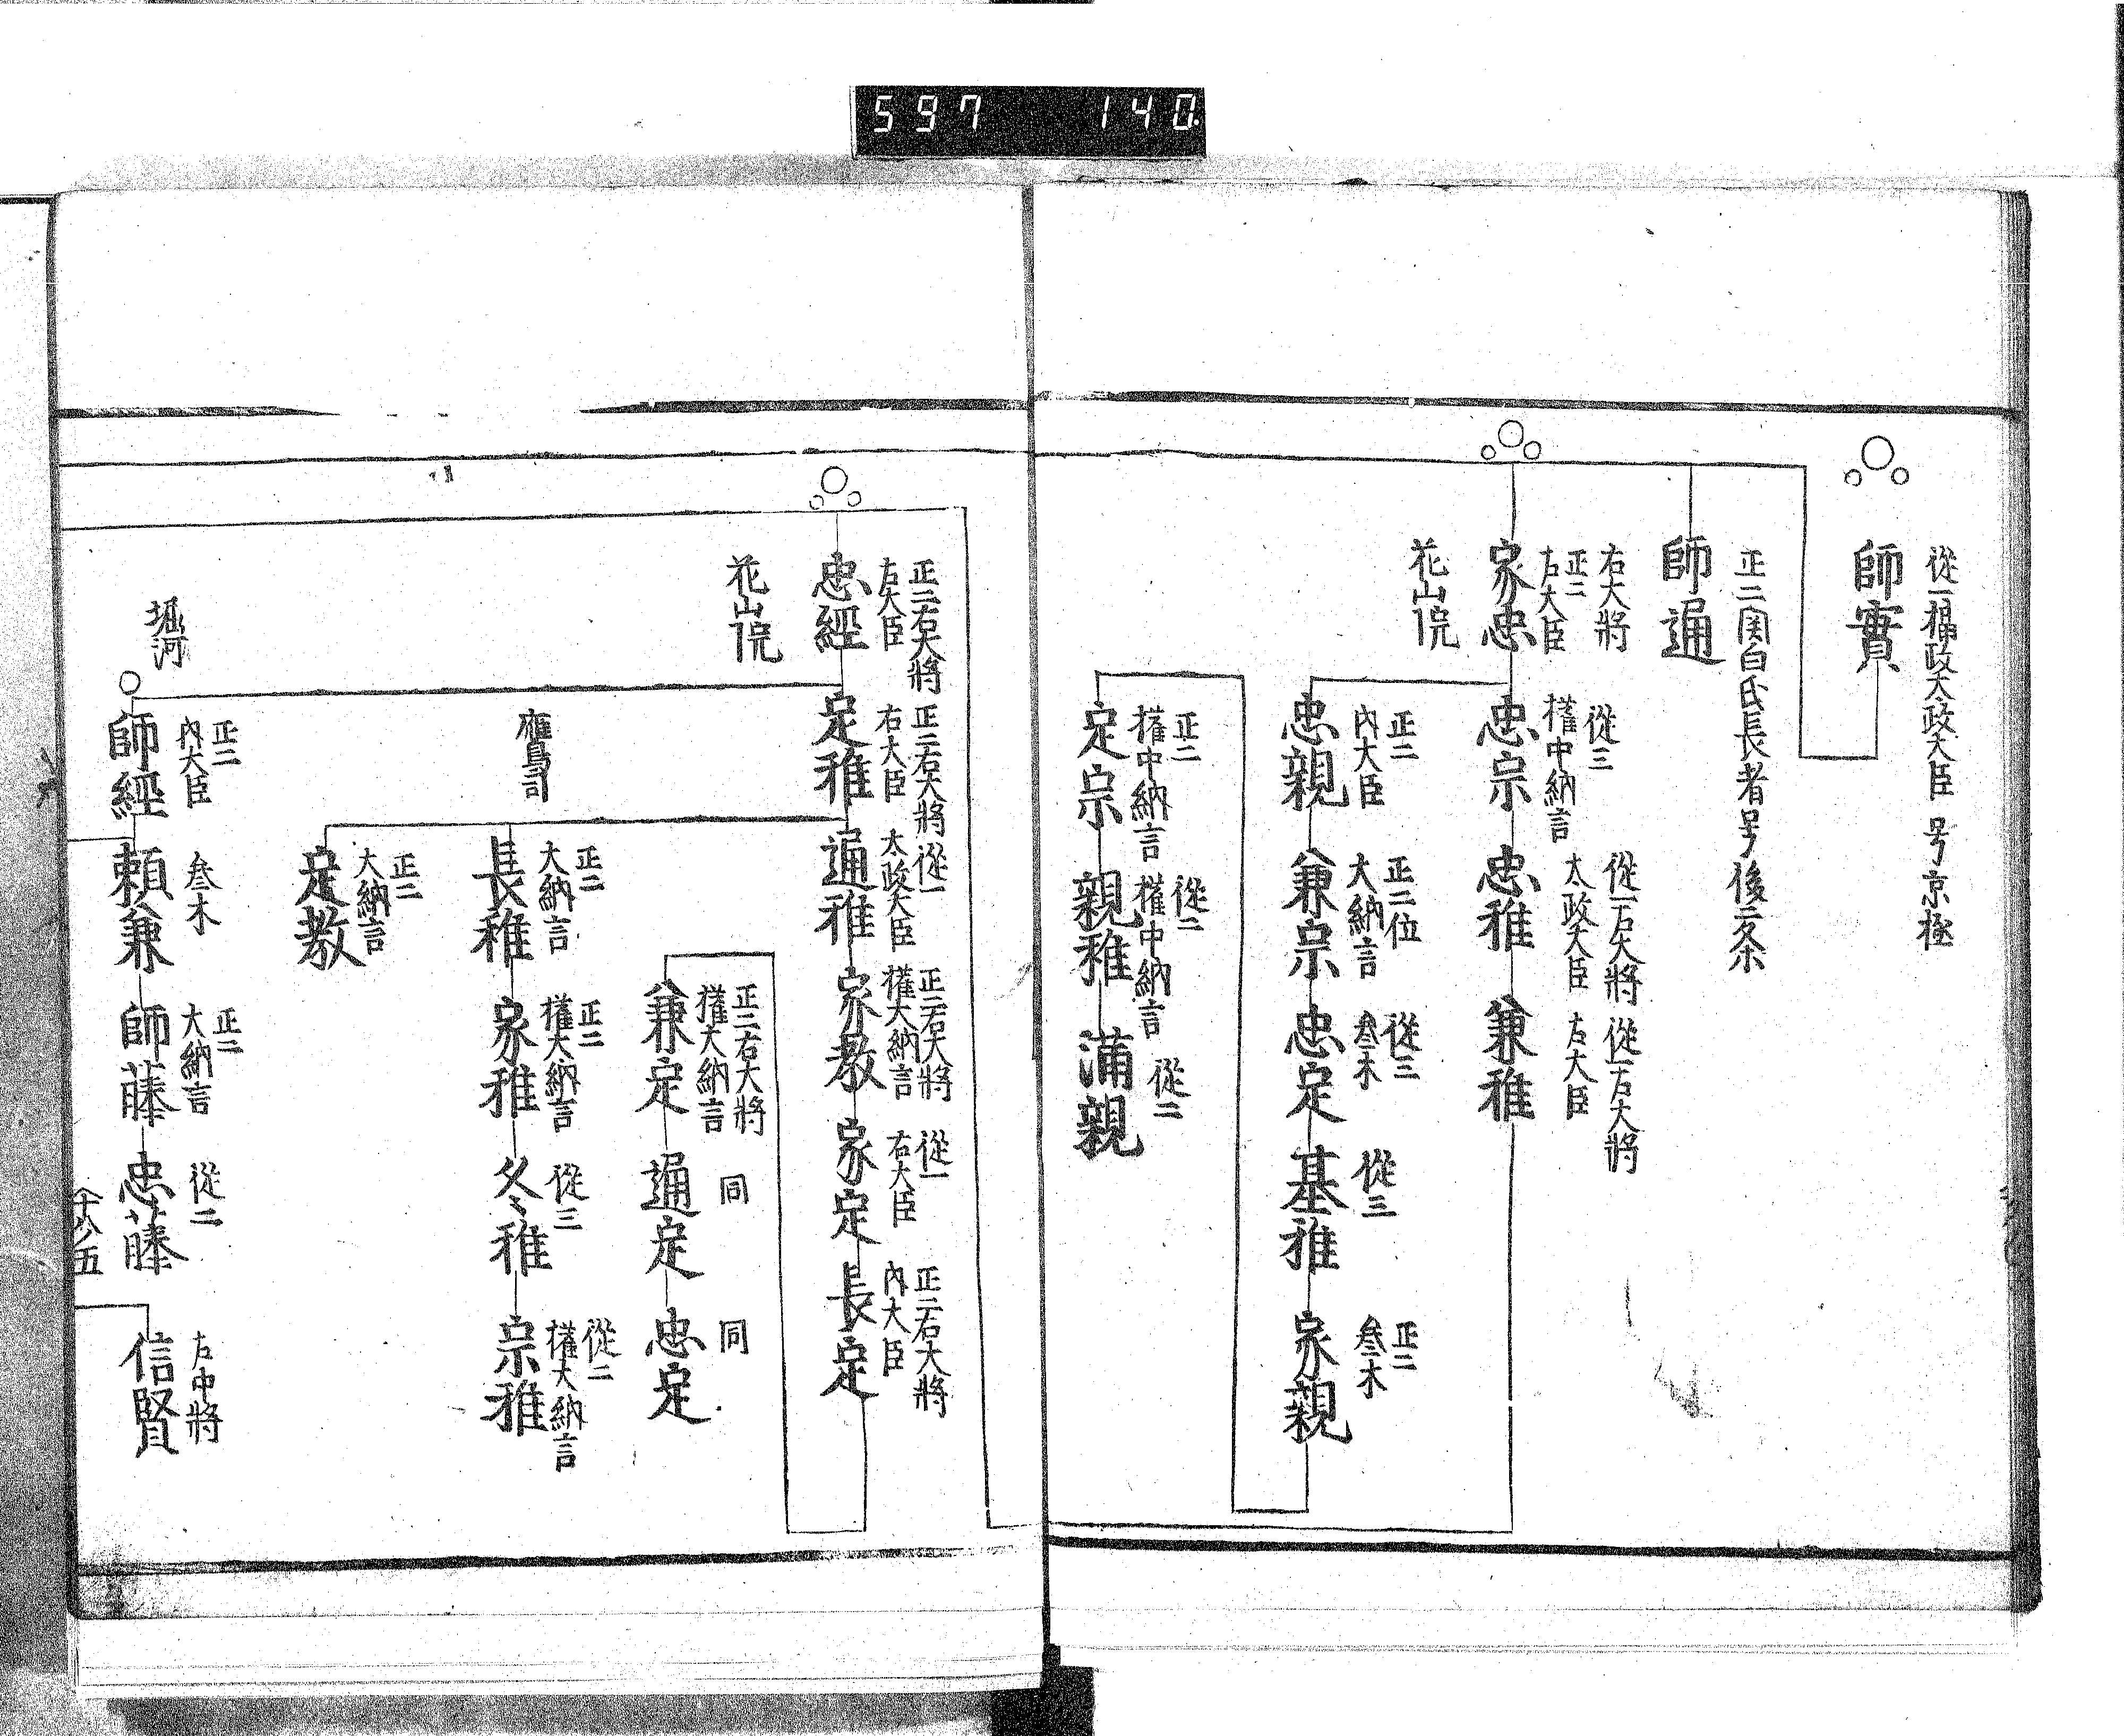 597 140
從一攝政太政大臣 号京極
師實
正二関白氏長者号後二条
師通
右大將
正二
左大臣
家忠
花山院
從三
權中納言
忠宗
從一左大將
太政大臣
忠雅
從一左大將
左大臣
兼雅
正二
內大臣
忠親
正二位
大納言
兼宗
從三
叅木
忠定
從三
基雅
正二
叅木
家親
正二
權中納言
定宗
從二
權中納言
親雅
從二
滿親
正二右大將
右大臣
忠經
花山院
正二右大將
右大臣
定雅
從一
太政大臣
通雅
正二右大將
權大納言
家教
從一
右大臣
家定
正二右大將
內大臣
長定
正二右大將
權大納言
兼定
同
通定
同
忠定
鷹司
正二
大納言
長雅
正二
權大納言
家雅
從三
冬雅
從二
權大納言
宗雅
正二
大納言
定教
堀河
正二
內大臣
師經
叅木
頼兼
正二
大納言
師藤
從二
忠藤
左中將
信賢